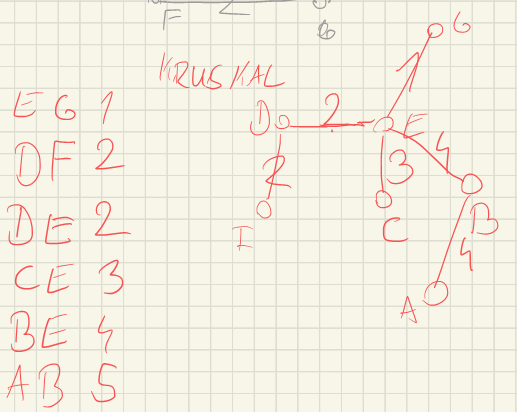 F 2
G
KRUSKAL
E G 1
D F 2
D E 2
C E 3
B E 4
A B 5
G
1
D 2 E
2 3 4
I C B
4
A